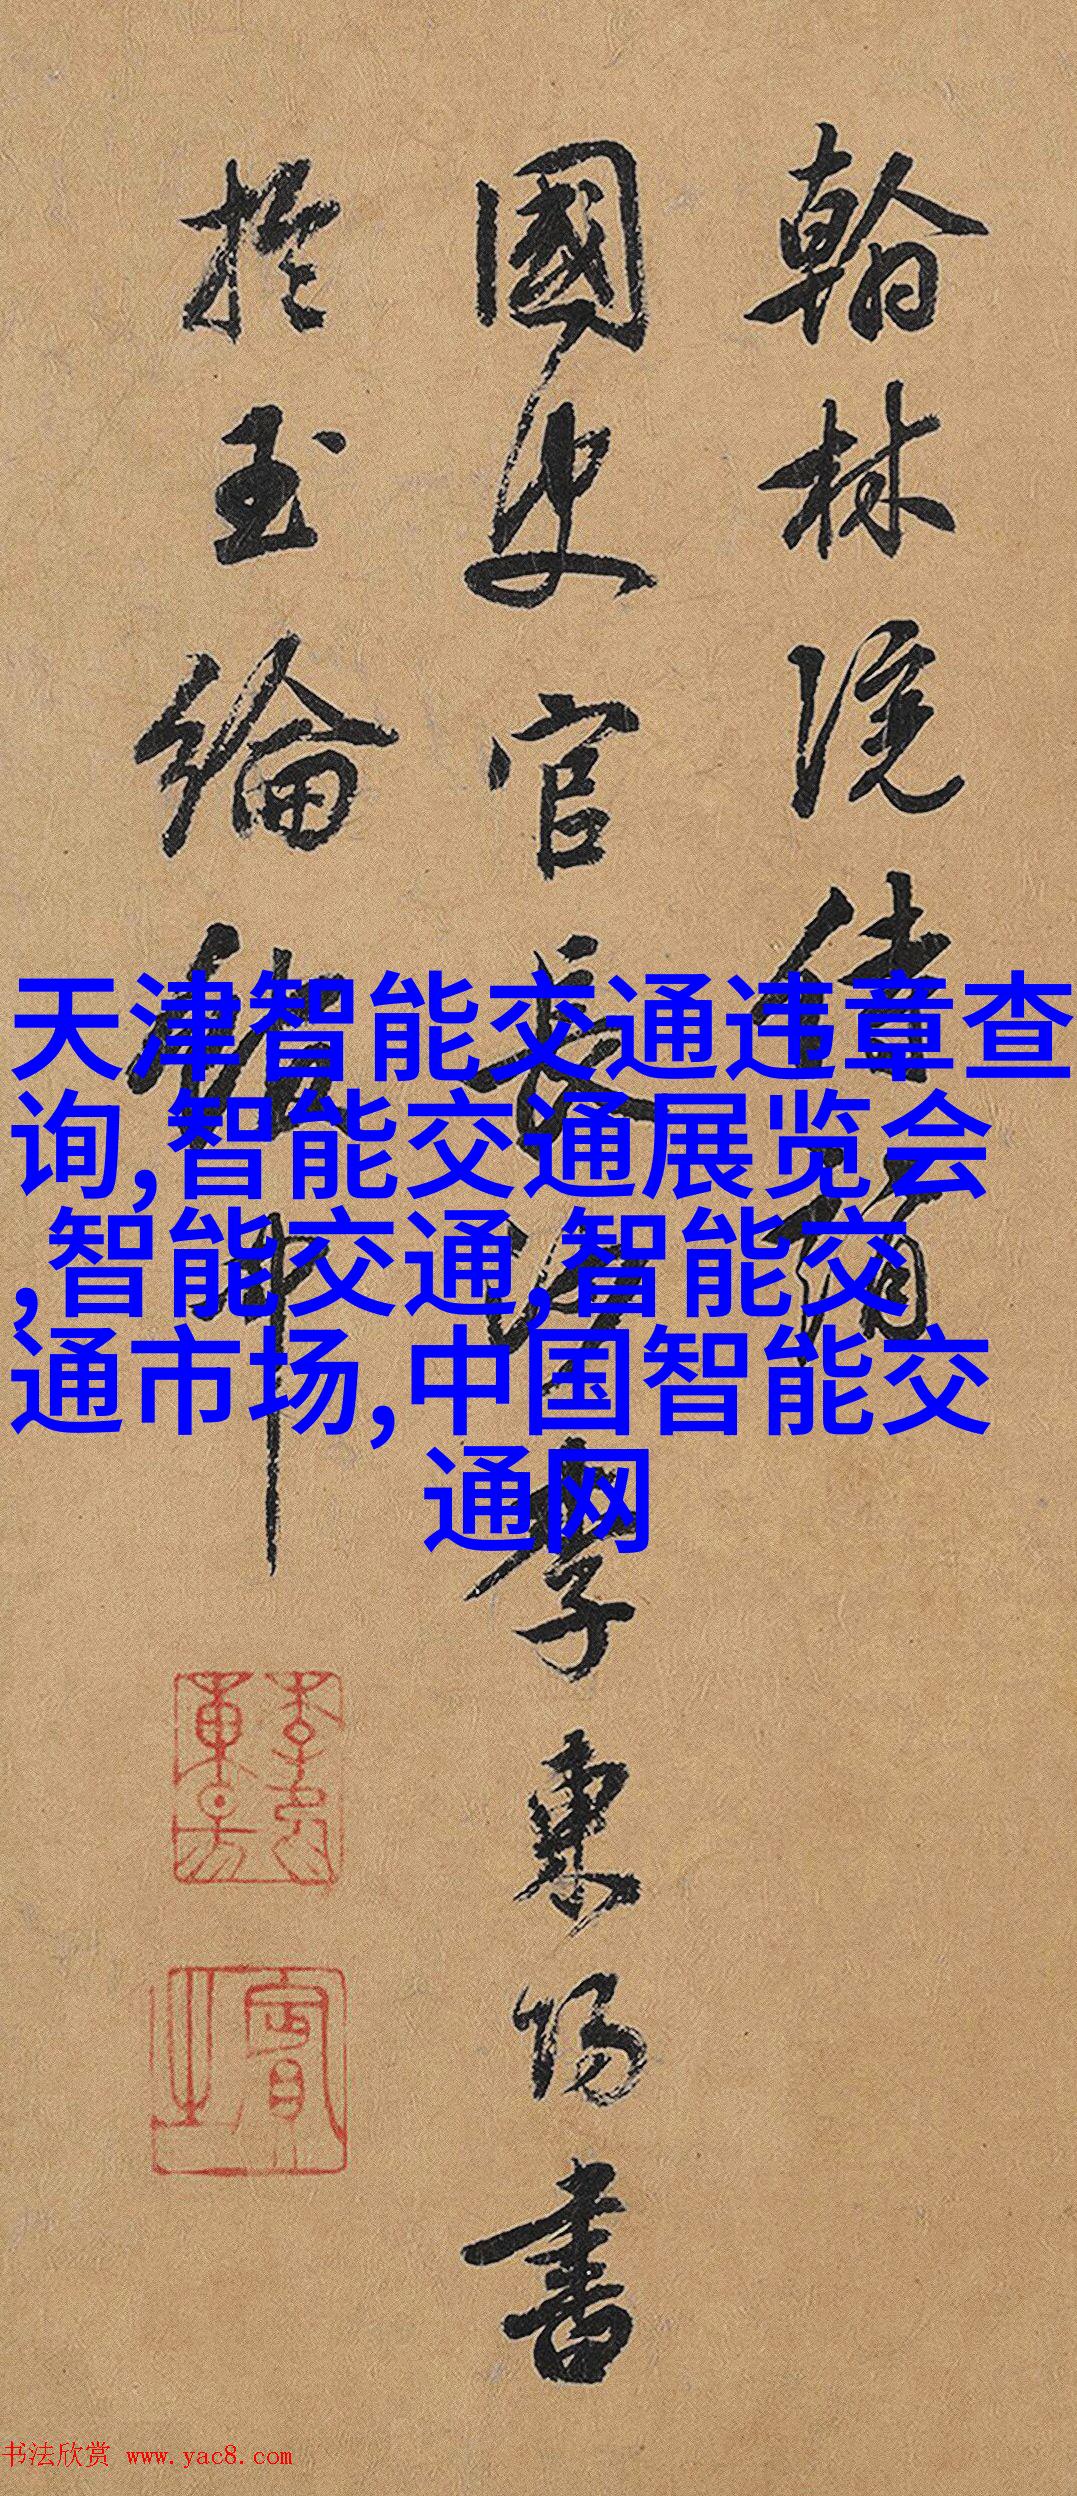 翰林院
國史官長沙李東陽書
於玉綸
天津智能交通违章查
询,智能交通展览会
,智能交通,智能交
通市场,中国智能交
通网
賓之
书法欣赏 www.yac8.com